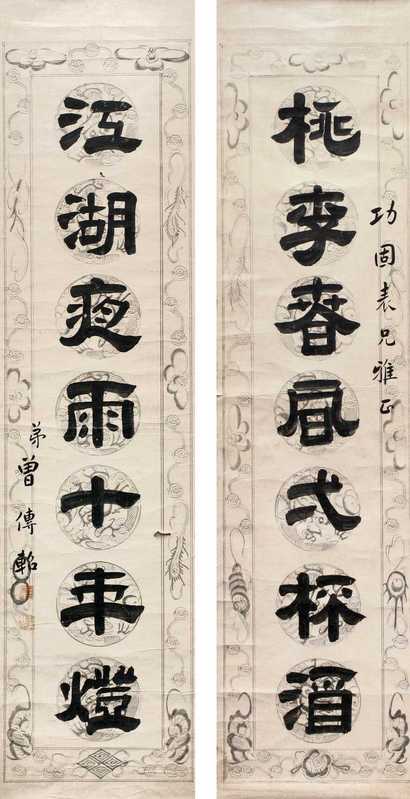 功固表兄雅正
桃李春風弌杯酒
江湖夜雨十年燈
弟曾傳軺